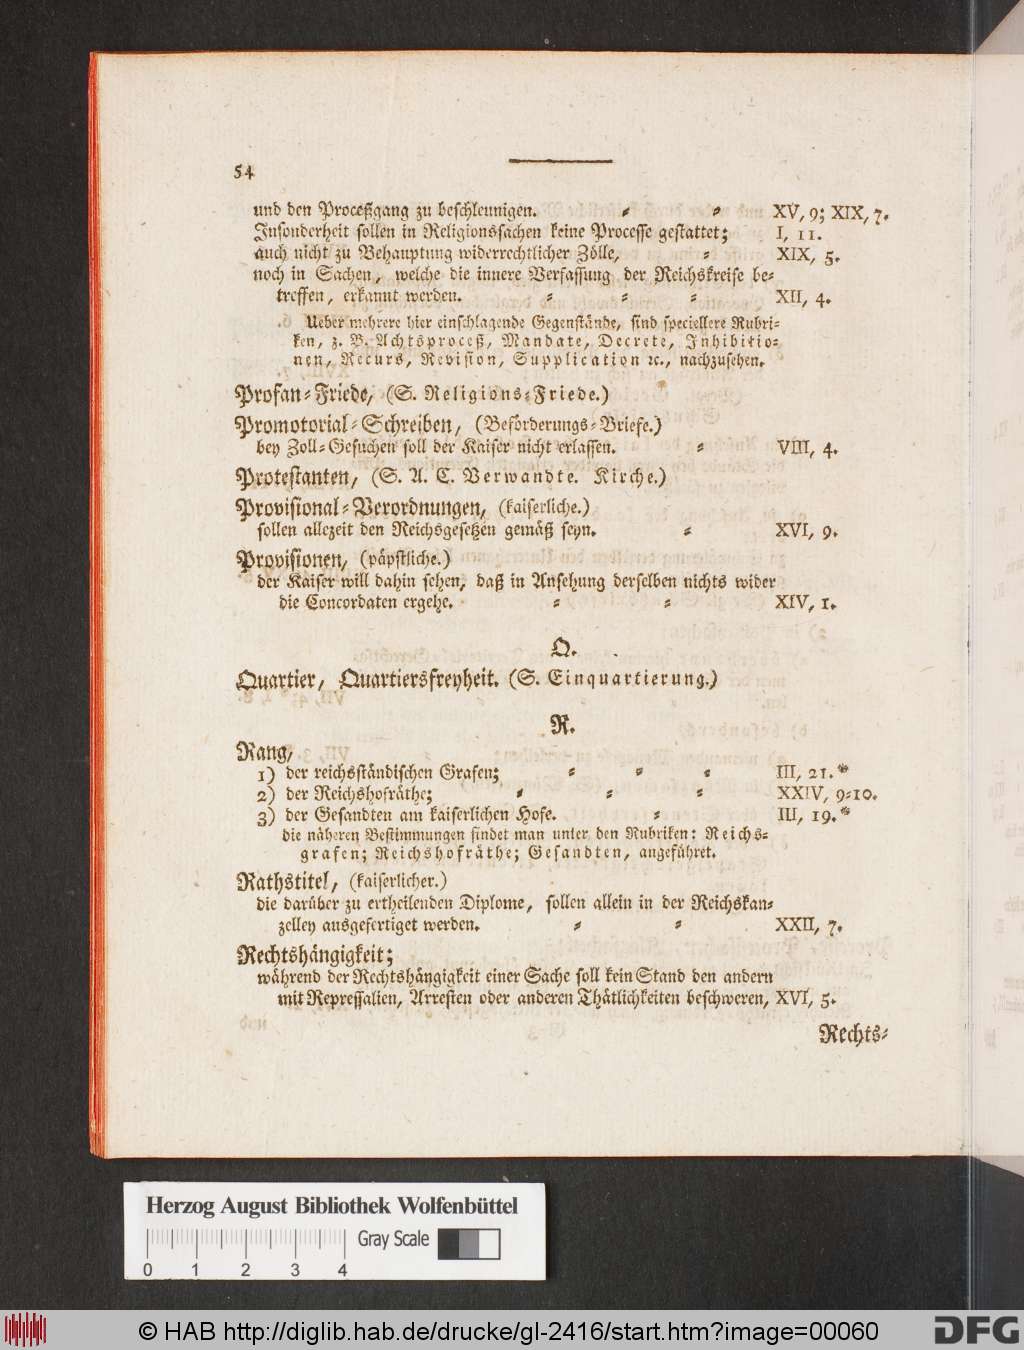 54
und den Proceßgang zu beschleunigen. = = XV, 9; XIX, 7.
Insonderheit sollen in Religionssachen keine Processe gestattet; I, 11.
auch nicht zu Behauptung widerrechtlicher Zölle, = XIX, 5.
noch in Sachen, welche die innere Verfassung der Reichskreise be=
treffen, erkannt werden. = = = XII, 4.
Ueber mehrere hier einschlagende Gegenstände, sind speciellere Rubri=
ken, z. B. Achtsproceß, Mandate, Decrete, Inhibitio=
nen, Recurs, Revision, Supplication ꝛc., nachzusehen.
Profan=Friede, (S. Religions=Friede.)
Promotorial=Schreiben, (Beförderungs=Briefe.)
bey Zoll=Gesuchen soll der Kaiser nicht erlassen. = VIII, 4.
Protestanten, (S. A. C. Verwandte. Kirche.)
Provisional=Verordnungen, (kaiserliche.)
sollen allezeit den Reichsgesetzen gemäß seyn. = XVI, 9.
Provisionen, (päpstliche.)
der Kaiser will dahin sehen, daß in Ansehung derselben nichts wider
die Concordaten ergehe. = = XIV, 1.
Q.
Quartier, Quartiersfreyheit. (S. Einquartierung.)
R.
Rang,
1) der reichsständischen Grafen; = = = III, 21.*
2) der Reichshofräthe; = = = XXIV, 9=10.
3) der Gesandten am kaiserlichen Hofe. = III, 19.*
die näheren Bestimmungen findet man unter den Rubriken: Reichs=
grafen; Reichshofräthe; Gesandten, angeführet.
Rathstitel, (kaiserlicher.)
die darüber zu ertheilenden Diplome, sollen allein in der Reichskan=
zelley ausgefertiget werden. = = XXII, 7.
Rechtshängigkeit;
während der Rechtshängigkeit einer Sache soll kein Stand den andern
mit Repressalien, Arresten oder anderen Thätlichkeiten beschweren, XVI, 5.
Rechts=
Herzog August Bibliothek Wolfenbüttel
Gray Scale
0 1 2 3 4
© HAB http://diglib.hab.de/drucke/gl-2416/start.htm?image=00060
DFG